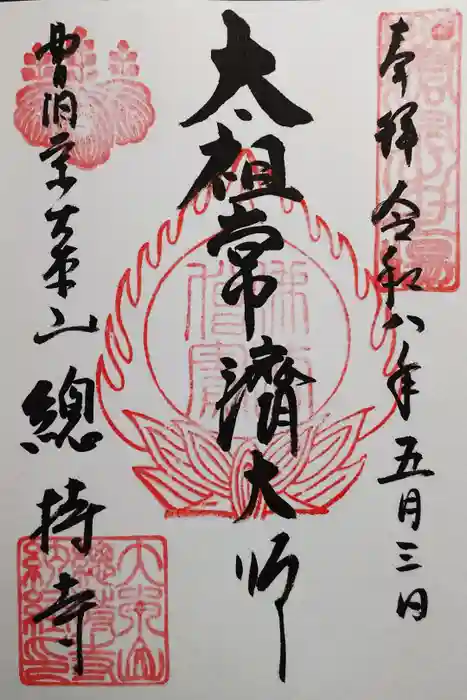 奉拝 令和八年 五月三日
太祖常濟大師
曹洞宗大本山 總持寺
佛法僧寶